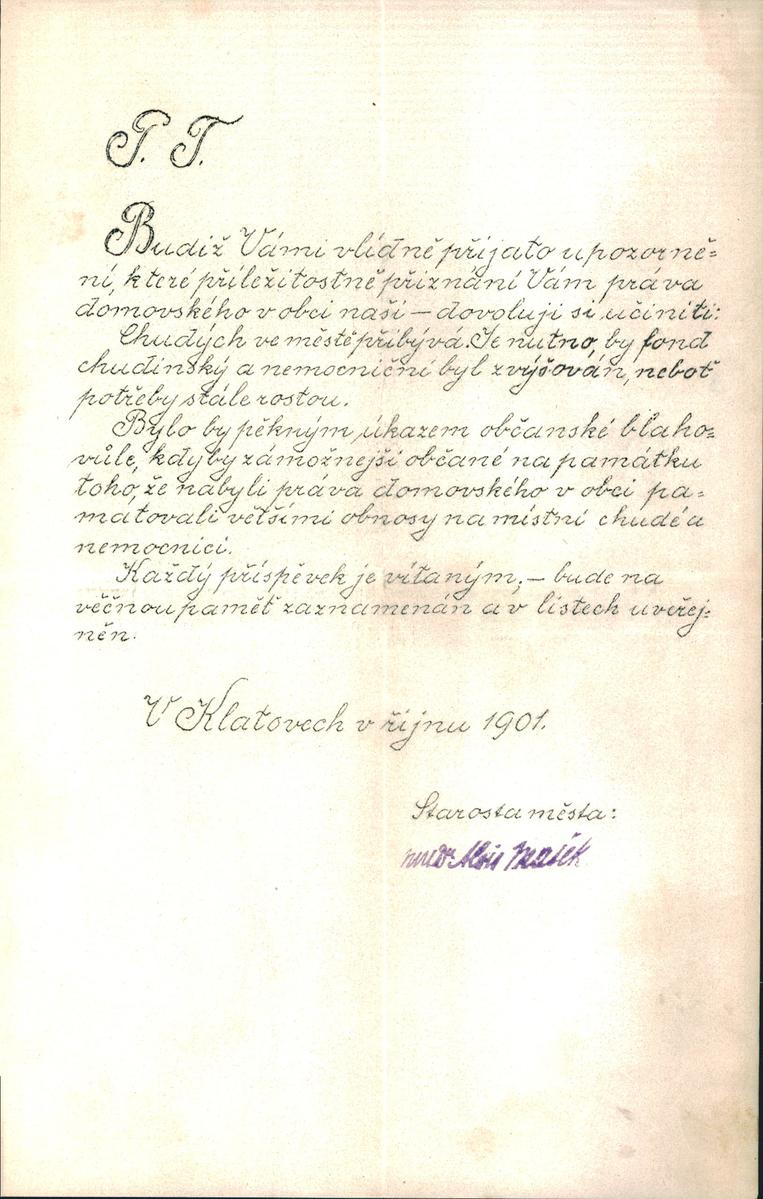 P. T.
Budiž Vámi vlídně přijato upozorně=
ní, které příležitostně přiznání Vám práva
domovského v obci naší – dovoluji si učiniti:
Chudých ve městě přibývá. Je nutno, by fond
chudinský a nemocniční byl zvýšován, neboť
potřeby stále rostou.
Bylo by pěkným úkazem občanské blaho=
vůle, kdyby zámožnejší občané na památku
toho, že nabyli práva domovského v obci pa=
matovali většími obnosy na místní chudé a
nemocnici.
Každý příspěvek je vítaným; – bude na
věčnou paměť zaznamenán a v listech uveřej=
něn.
V Klatovech v říjnu 1901.
Starosta města:
MUDr Alois Mašek